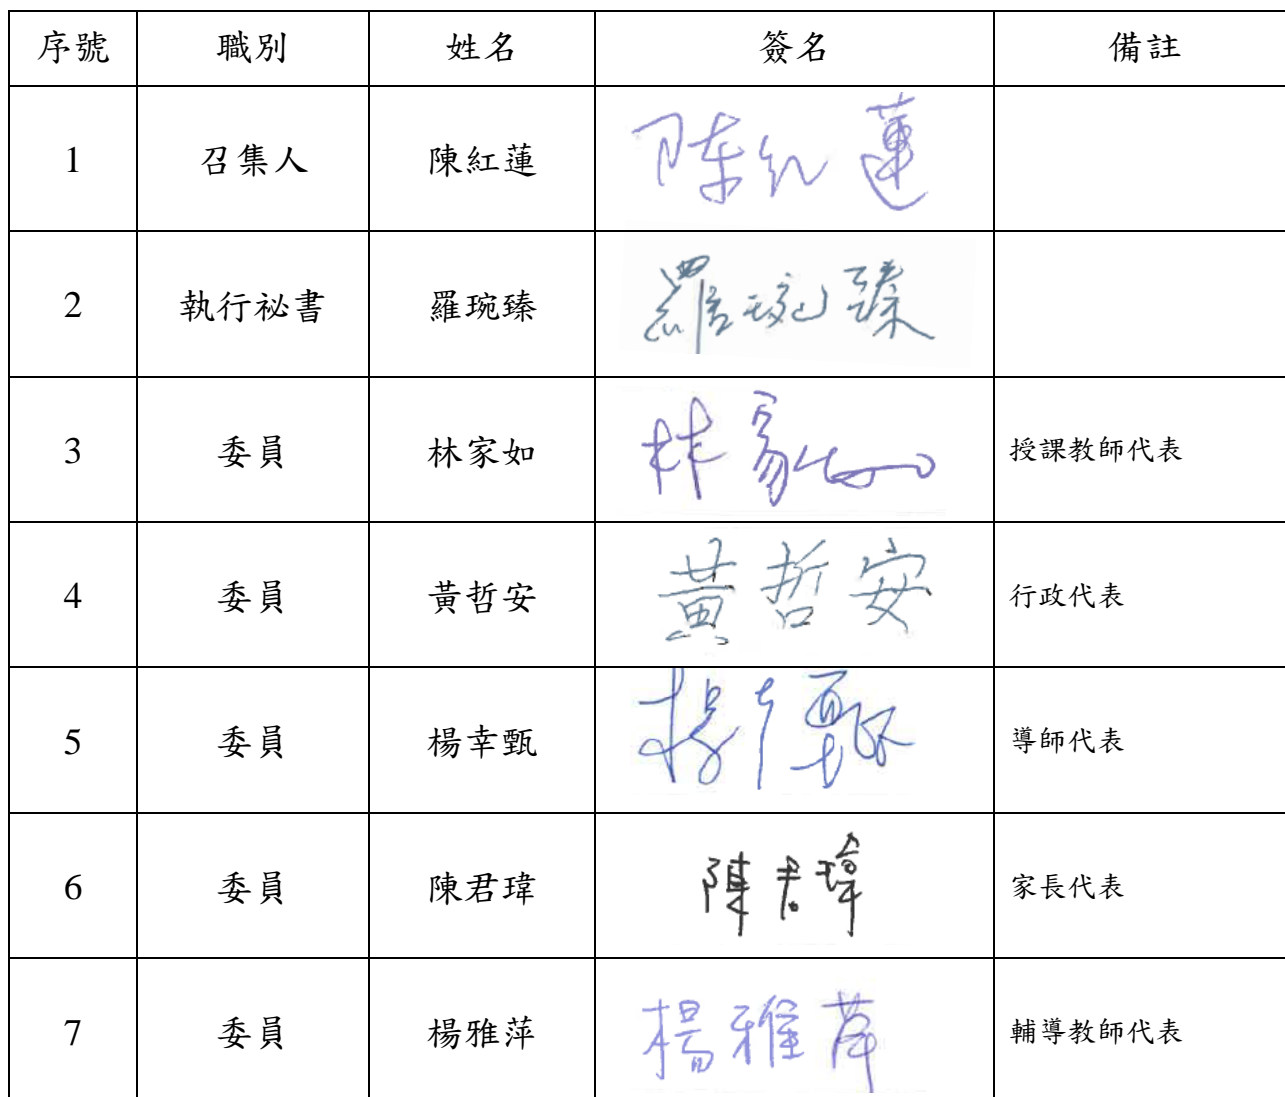 序號 職別 姓名 簽名 備註
1 召集人 陳紅蓮 陈紅蓮
2 執行祕書 羅琬臻 羅琬臻
3 委員 林家如 林家如 授課教師代表
4 委員 黃哲安 黃哲安 行政代表
5 委員 楊幸甄 楊幸甄 導師代表
6 委員 陳君瑋 陳君瑋 家長代表
7 委員 楊雅萍 楊雅萍 輔導教師代表